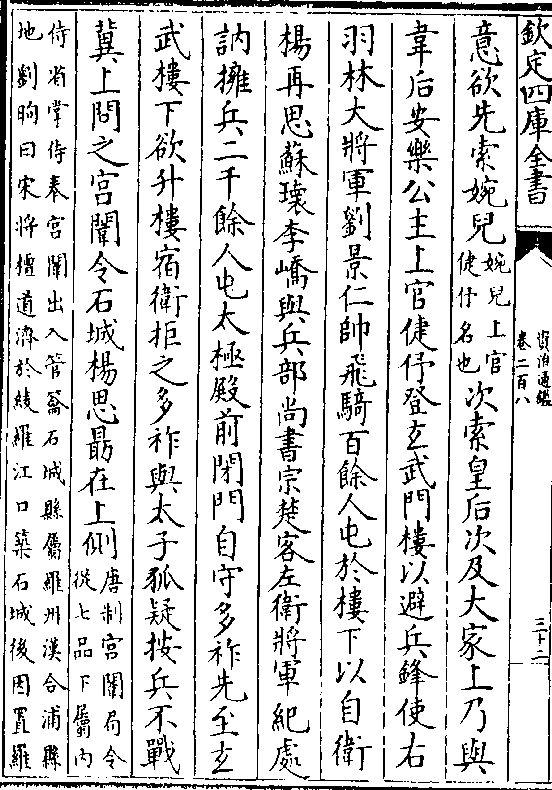 欽定四庫全書
資治通鑑
卷二百八
三十二
意欲先索婉兒婉兒上官倢伃名也次索皇后次及大家上乃與
韋后安樂公主上官倢伃登玄武門樓以避兵鋒使右
羽林大將軍劉景仁帥飛騎百餘人屯於樓下以自衛
楊再思蘇瓌李嶠與兵部尚書宗楚客左衛將軍紀處
訥擁兵二千餘人屯太極殿前閉門自守多祚先至玄
武樓下欲升樓宿衛拒之多祚與太子狐疑按兵不戰
冀上問之宮闈令石城楊思勗在上側唐制宮闈局令從七品下屬內
侍省掌侍奉宮闈出入管籥石城縣屬羅州漢合浦縣
地劉昫曰宋將檀道濟於綾羅江口築石城後因置羅